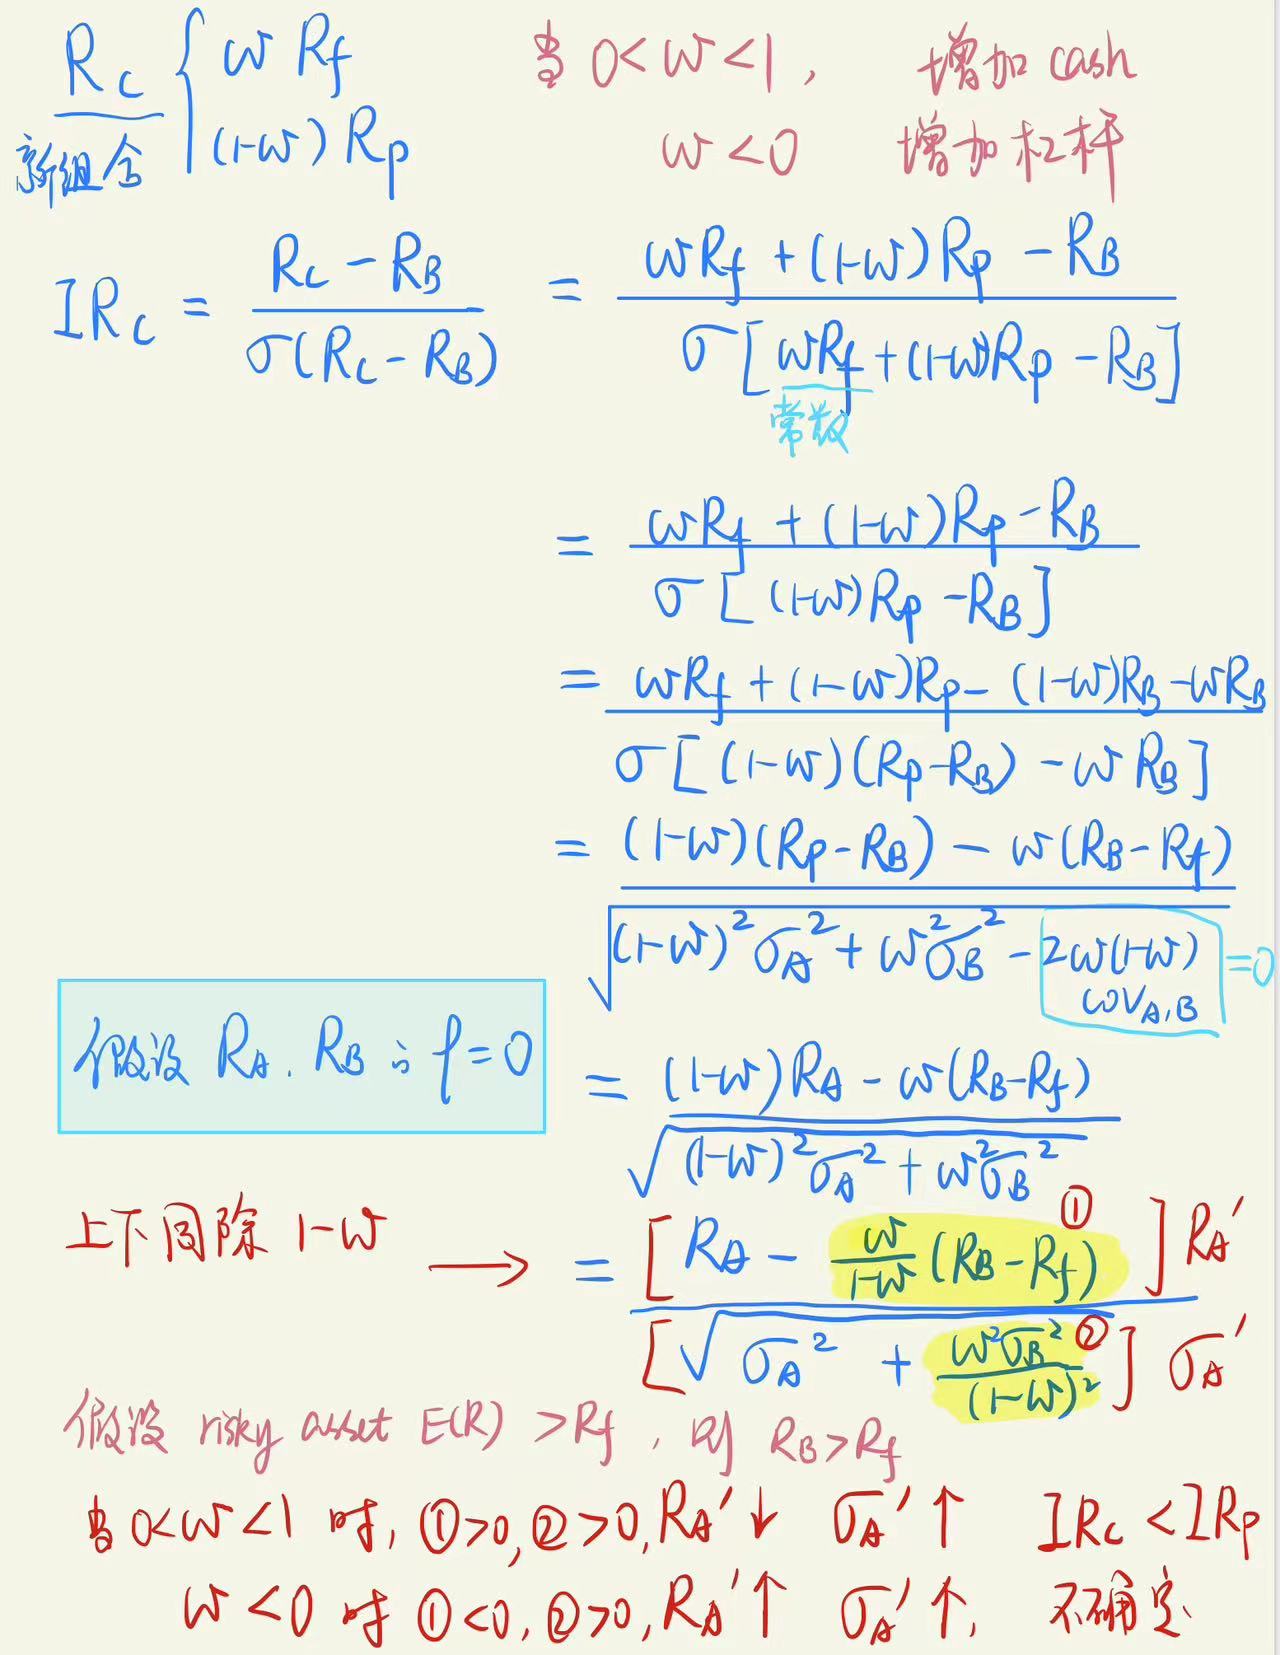 R_C { wR_f    当 0<w<1,    增加 cash
新组合 (1-w)R_p    w<0    增加杠杆
IR_C = (R_C - R_B) / σ(R_C - R_B) = (wR_f + (1-w)R_p - R_B) / σ[wR_f + (1-w)R_p - R_B]
常数
= (wR_f + (1-w)R_p - R_B) / σ[(1-w)R_p - R_B]
= (wR_f + (1-w)R_p - (1-w)R_B - wR_B) / σ[(1-w)(R_p-R_B) - wR_B]
= ((1-w)(R_p-R_B) - w(R_B-R_f)) / √((1-w)²σ_A² + w²σ_B² - 2w(1-w)cov_{A,B}) =0
假设 R_A. R_B 的 ρ=0
= ((1-w)R_A - w(R_B-R_f)) / √((1-w)²σ_A² + w²σ_B²)
上下同除 1-w → = [R_A - w/(1-w) (R_B-R_f) ①] R_A' / [√(σ_A² + w²σ_B²/(1-w)² ②)] σ_A'
假设 risky asset E(R) >R_f , 则 R_B>R_f
当 0<w<1 时, ①>0, ②>0, R_A'↓ σ_A'↑ IR_C < IR_p
w<0 时 ①<0, ②>0, R_A'↑ σ_A'↑, 不确定